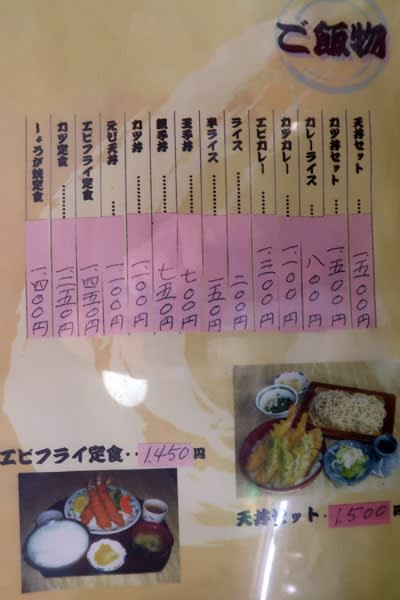 ご飯物
天丼セット……一、五〇〇円
カツ丼セット……一、五〇〇円
カレーライス……八〇〇円
カツカレー……一、一〇〇円
エビカレー……一、三〇〇円
ライス……二〇〇円
半ライス……一五〇円
玉子丼……七〇〇円
親子丼……七五〇円
カツ丼……一、一〇〇円
元び天丼……一、一〇〇円
エビフライ定食……一、四五〇円
カツ定食……一、二五〇円
しょうが焼定食……一、四〇〇円
エビフライ定食‥1,450円
天丼セット・1,500円